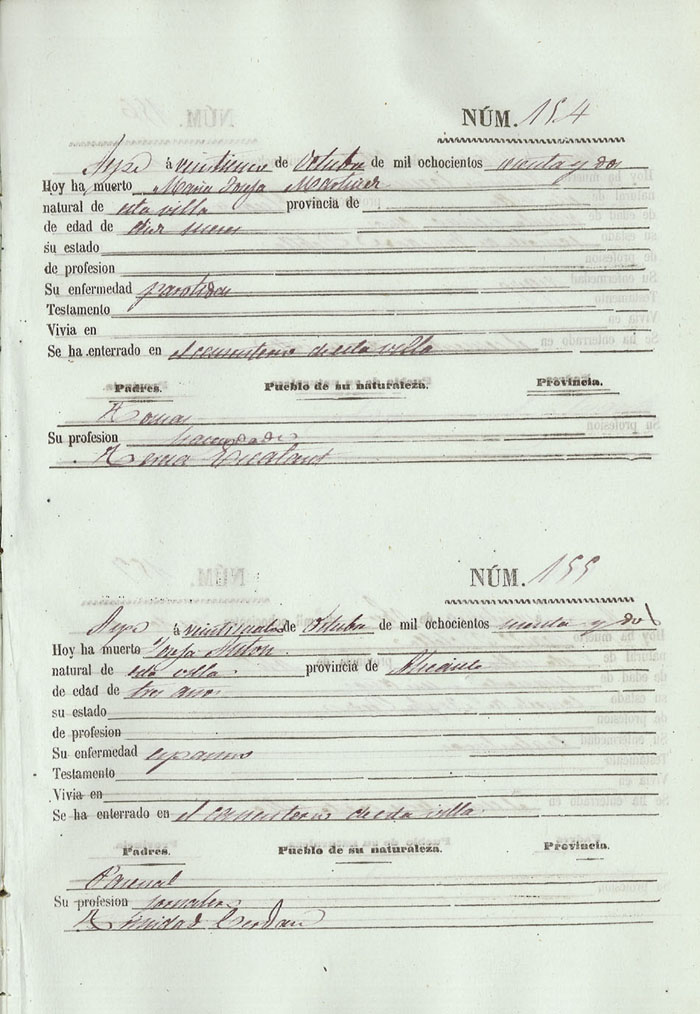 NÚM. 154
Aspe á veintiuno de Octubre de mil ochocientos noventa y dos
Hoy ha muerto Maria Josefa Martinez
natural de esta villa provincia de
de edad de diez meses
su estado
de profesion
Su enfermedad
Testamento
Vivia en
Se ha enterrado en el cementerio de esta villa
Padres. Pueblo de su naturaleza. Provincia.
Su profesion
NÚM. 155
Aspe á de Octubre de mil ochocientos noventa y dos
Hoy ha muerto Josefa
natural de esta villa provincia de Alicante
de edad de tres años
su estado
de profesion
Su enfermedad espasmo
Testamento
Vivia en
Se ha enterrado en el cementerio de esta villa
Padres. Pueblo de su naturaleza. Provincia.
Pascual
Su profesion jornalero
Trinidad Cerdan